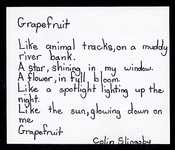 Grapefruit
Like animal tracks, on a muddy
river bank.
A star, shining in my window.
A flower, in full bloom
Like a spotlight lighting up the
night.
Like the sun, glowing down on
me
Grapefruit
Colin Slingsby